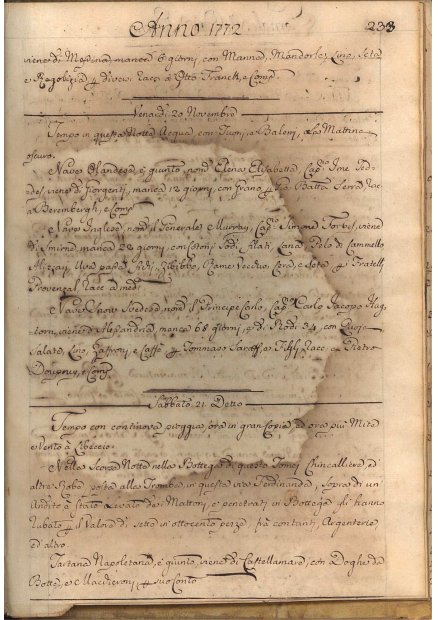 Anno 1772
233
viene di Messina manca 6 giorni, con Manna, Mandorle, Lino, Seta
e Regolizia p diversi Racc. a Otto Franck, e Comp.
Venerdì 20 Novembre
Tempo in questa Notte Acqua con Tuoni, e Baleni, e la Mattina
oscuro.
Nave Olandese, è giunta, nom. Elena Elisabetta, Cap.no
viene di Giorgenti, manca 12 giorni, con Grano p Batta
a Berembergh, e Comp.
Nave Inglese nom. il Generale Murray, Cap.no Simone Forbes, viene
di Smirne manca 28 giorni, con Cotoni Sodi, e filati, Lana, Pelo di Cammello
Uva passa, Fichi, Zibibbo, Rame Vecchio, Cera, e Seta p Fratelli
Provenzal Racc. a med.i
Nave Svedese nom. il Principe Carlo, Cap.no Carlo Jacopo
viene d'Alessandria, manca 68 giorni, e di Rodi 34, con Cuoja
Salate, Lino, Zaffroni, e Caffè p Tommaso e Figli, Racc. a Pietro
e Comp.
Sabbato 21 Detto
Tempo con continova pioggia, ora in gran Copia, ed ora più Mite
e Vento a Libeccio.
Nella scorsa Notte nella Bottega di questo Tomei Chincalliere, ed
altre Robe, posta alla Tromba in questa via Ferdinanda, sopra di un
Andito è stato Levato dei Mattoni, e penetrati in Bottega gli hanno
rubato p il Valore di sette in ottocento pezze, fra contanti, Argenterie
ed altro.
Tartana Napoletana, è giunta, viene di Castellamare, con Doghe da
Botte, e Maccheroni p suo Conto